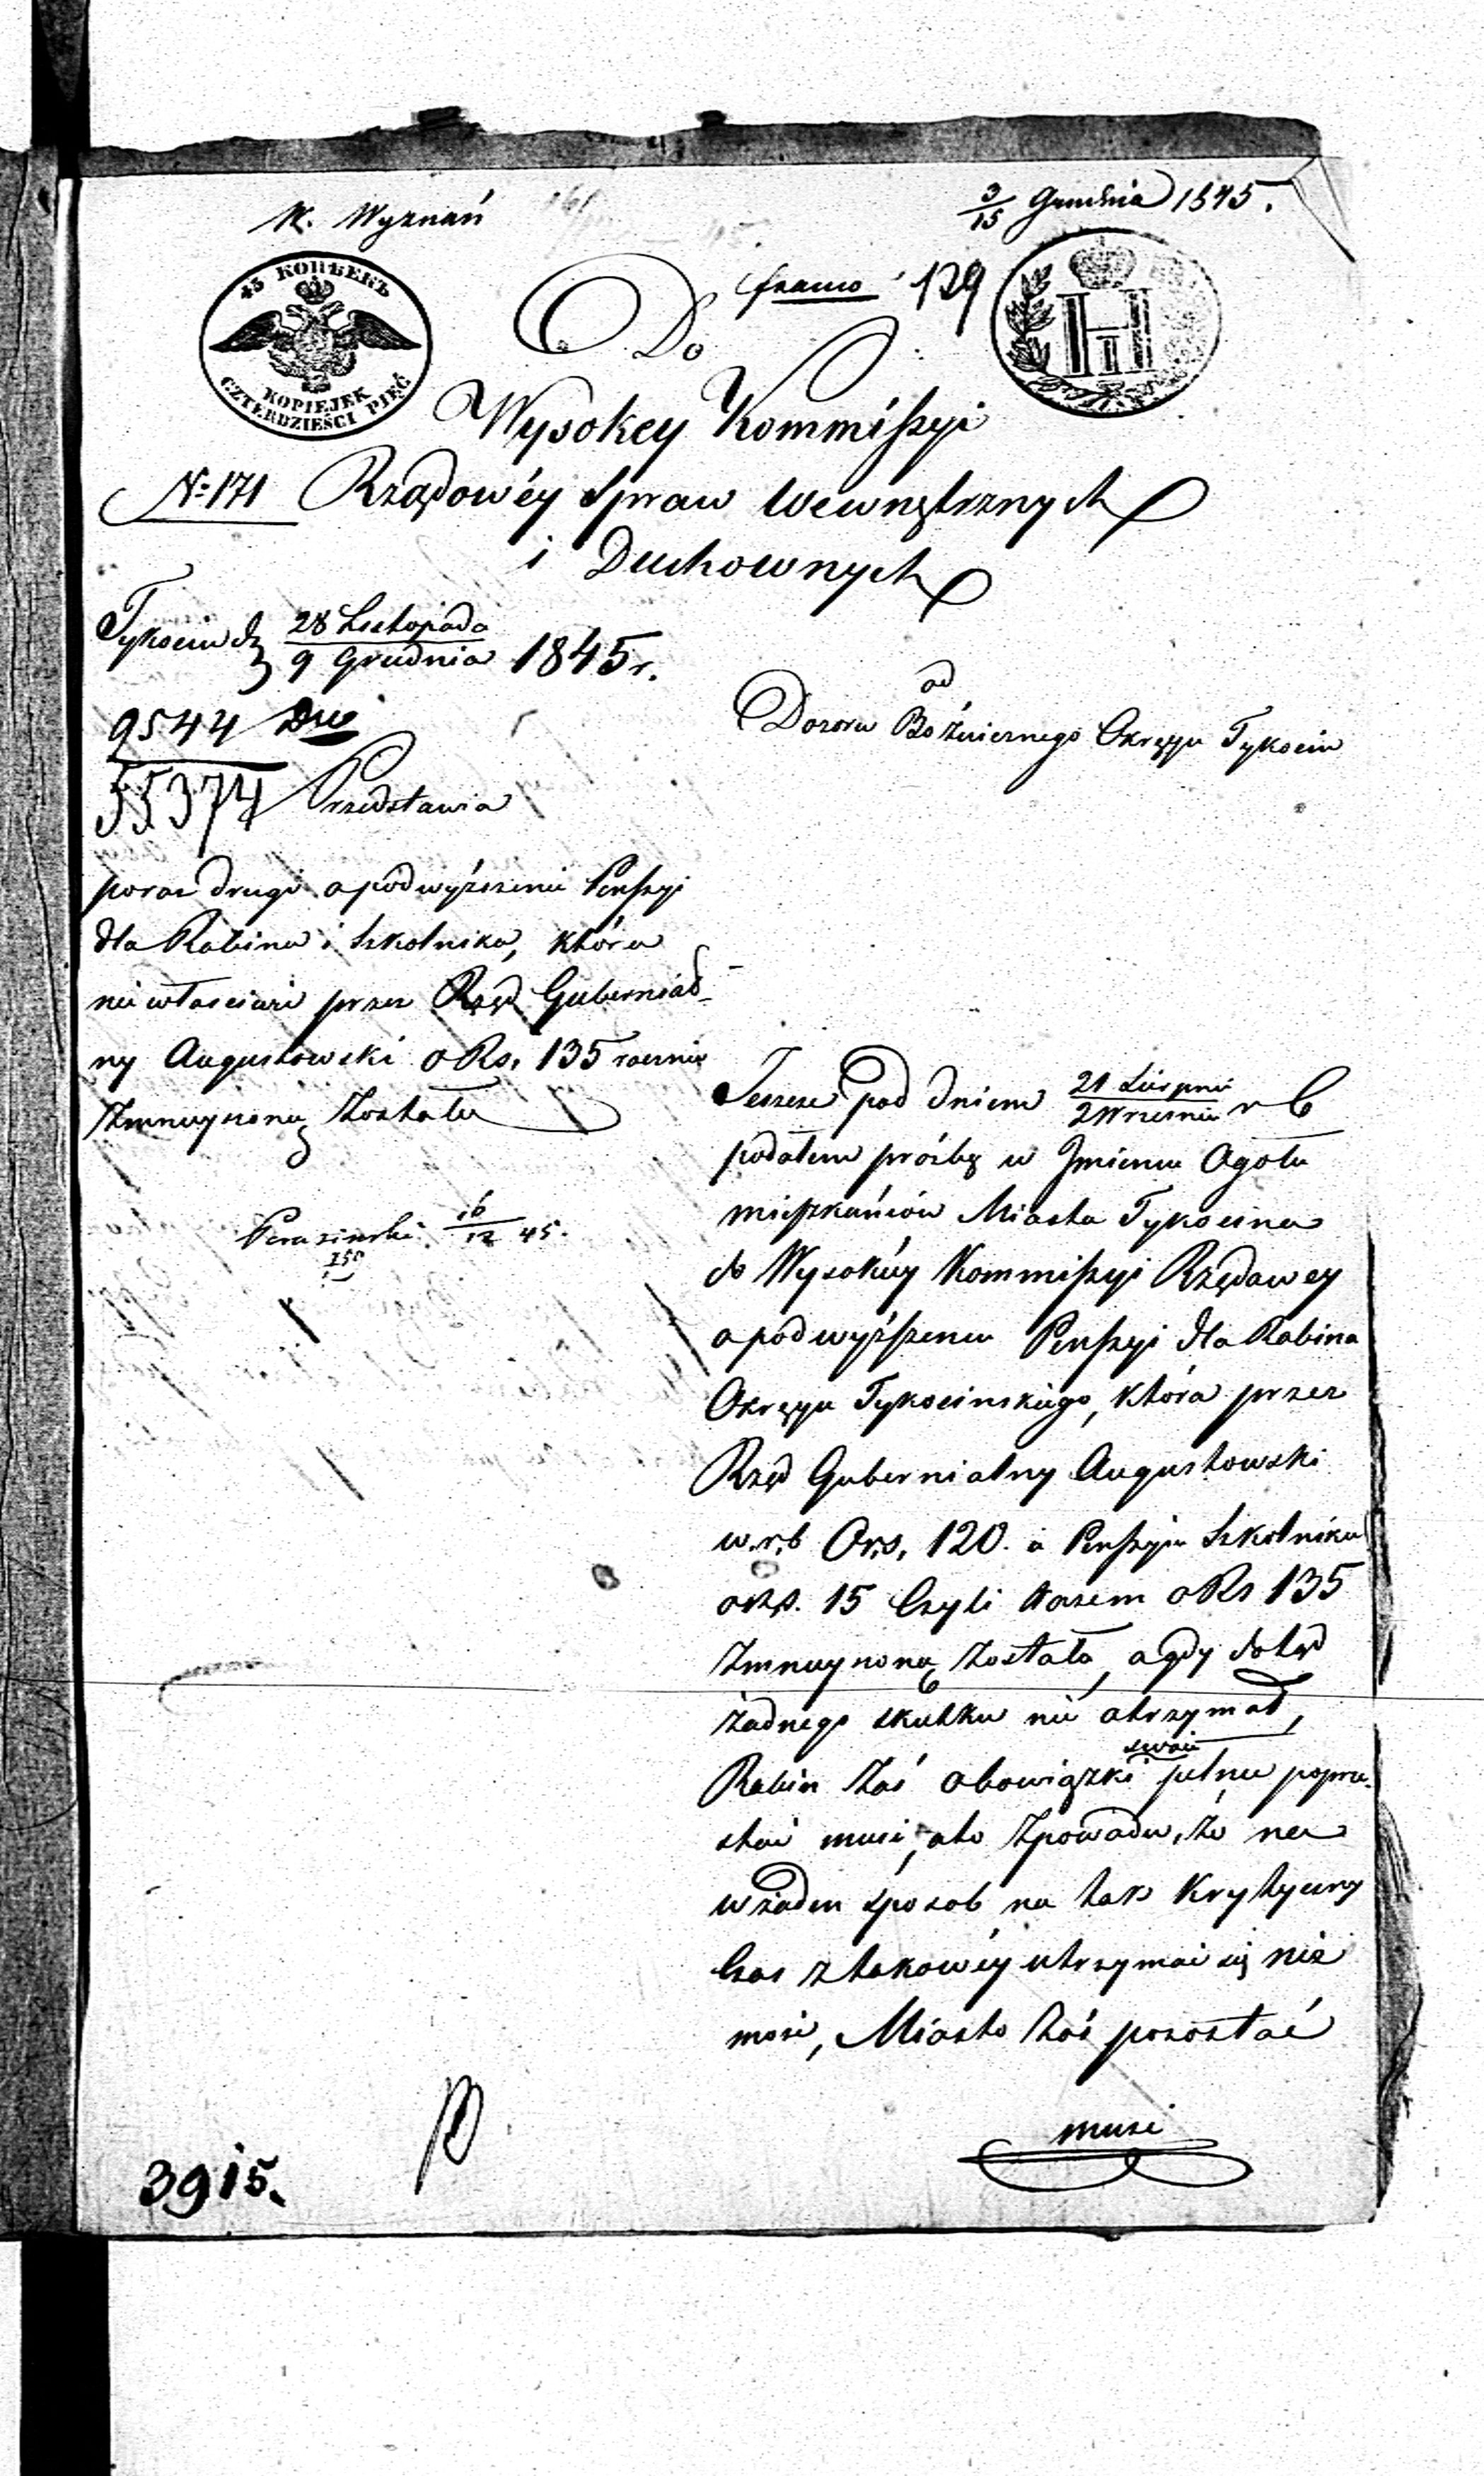 W. Wyznań
3/15 Grudnia 1845.
franco 129
45 КОПѢЕКЪ
KOPIEJEK
CZTERDZIEŚCI PIĘĆ
Do
Wysokey Kommißyi
№ 171 Rządowéy Spraw Wewnętrznych
i Duchownych
Tykocin d. 28 Listopada / 9 Grudnia 1845 r.
9544
55374
od
Dozoru Bóżnicznego Okręgu Tykocin
Przedstawia
poraz drugi o podwyższenie Penßyi
dla Rabina i Szkolnika, która
niewłaściwie przez Rząd Gubernial-
ny Augustowski o Rs. 135 rocznie
zmnieyszoną została
16/12 45.
Jeszcze pod dniem 21 Sierpnia / 2 Września r b
podałem prózbę w Jmieniu Ogołu
mießzkańców Miasta Tykocina
do Wysokiéy Kommißyi Rządowey
o podwyżßzenie Penßyi dla Rabina
Okręgu Tykocinskiego, która przez
Rząd Gubernialny Augustowski
w. r. b O rs. 120. a Penßyia Szkolnika
o rs. 15 Czyli razem o Rs 135
zmnieyszoną została, a gdy dotąd
żadnego skutku nie otrzymał,
Rabin zaś obowiązki swoie pełnić poprze-
stać musi, a to z powodu, że na
w żaden sposób na tak krytyczny
Czas z takowéy utrzymać się nie
może, Miasto zaś pozostać
musi
3915.